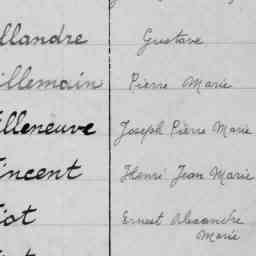 llandre Gustave
illemain Pierre Marie
illeneuve Joseph Pierre Marie
incent Henri Jean Marie
iot Ernest Alexandre
Marie